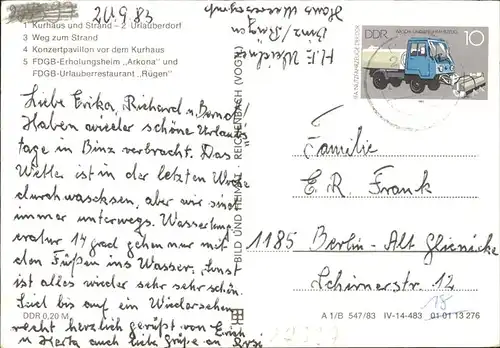 20.9.83
1 Kurhaus und Strand – 2 Urlauberdorf
3 Weg zum Strand
4 Konzertpavillon vor dem Kurhaus
5 FDGB-Erholungsheim „Arkona" und
FDGB-Urlauberrestaurant „Rügen"
Liebe Erika, Richard u. Bernd!
Haben wieder schöne Urlaubs
tage in Binz verbracht. Das
Wetter ist in der letzten Woche
durchwachsen, aber wir sind
immer unterwegs. Wassertemp
eratur 14 grad gehen nur mit
den Füßen ins Wasser, sonst
ist alles wieder sehr sehr schön.
Seid bis auf ein Wiedersehen
recht herzlich gegrüßt von Erich
u. Herta auch liebe Grüße an
DDR 0,20 M
BILD UND HEIMAT REICHENBACH (VOGTL)
Binz/Rügen
Haus
DDR
10
Familie
E. R. Frank
1185 Berlin-Alt Glienicke
Schirnerstr. 12
15
A 1/B 547/83 IV-14-483 01 01 13 276